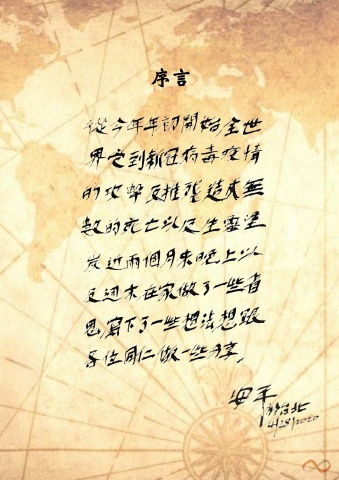 序言
從今年年初開始,全世
界受到新冠病毒疫情
的攻擊及摧殘造成無
數的死亡以及生靈塗
炭近兩個月來晚上以
及週末在家做了一些省
思,寫下了一些想法想跟
各位同仁做一些分享。
安平
於台北
4/28/2020